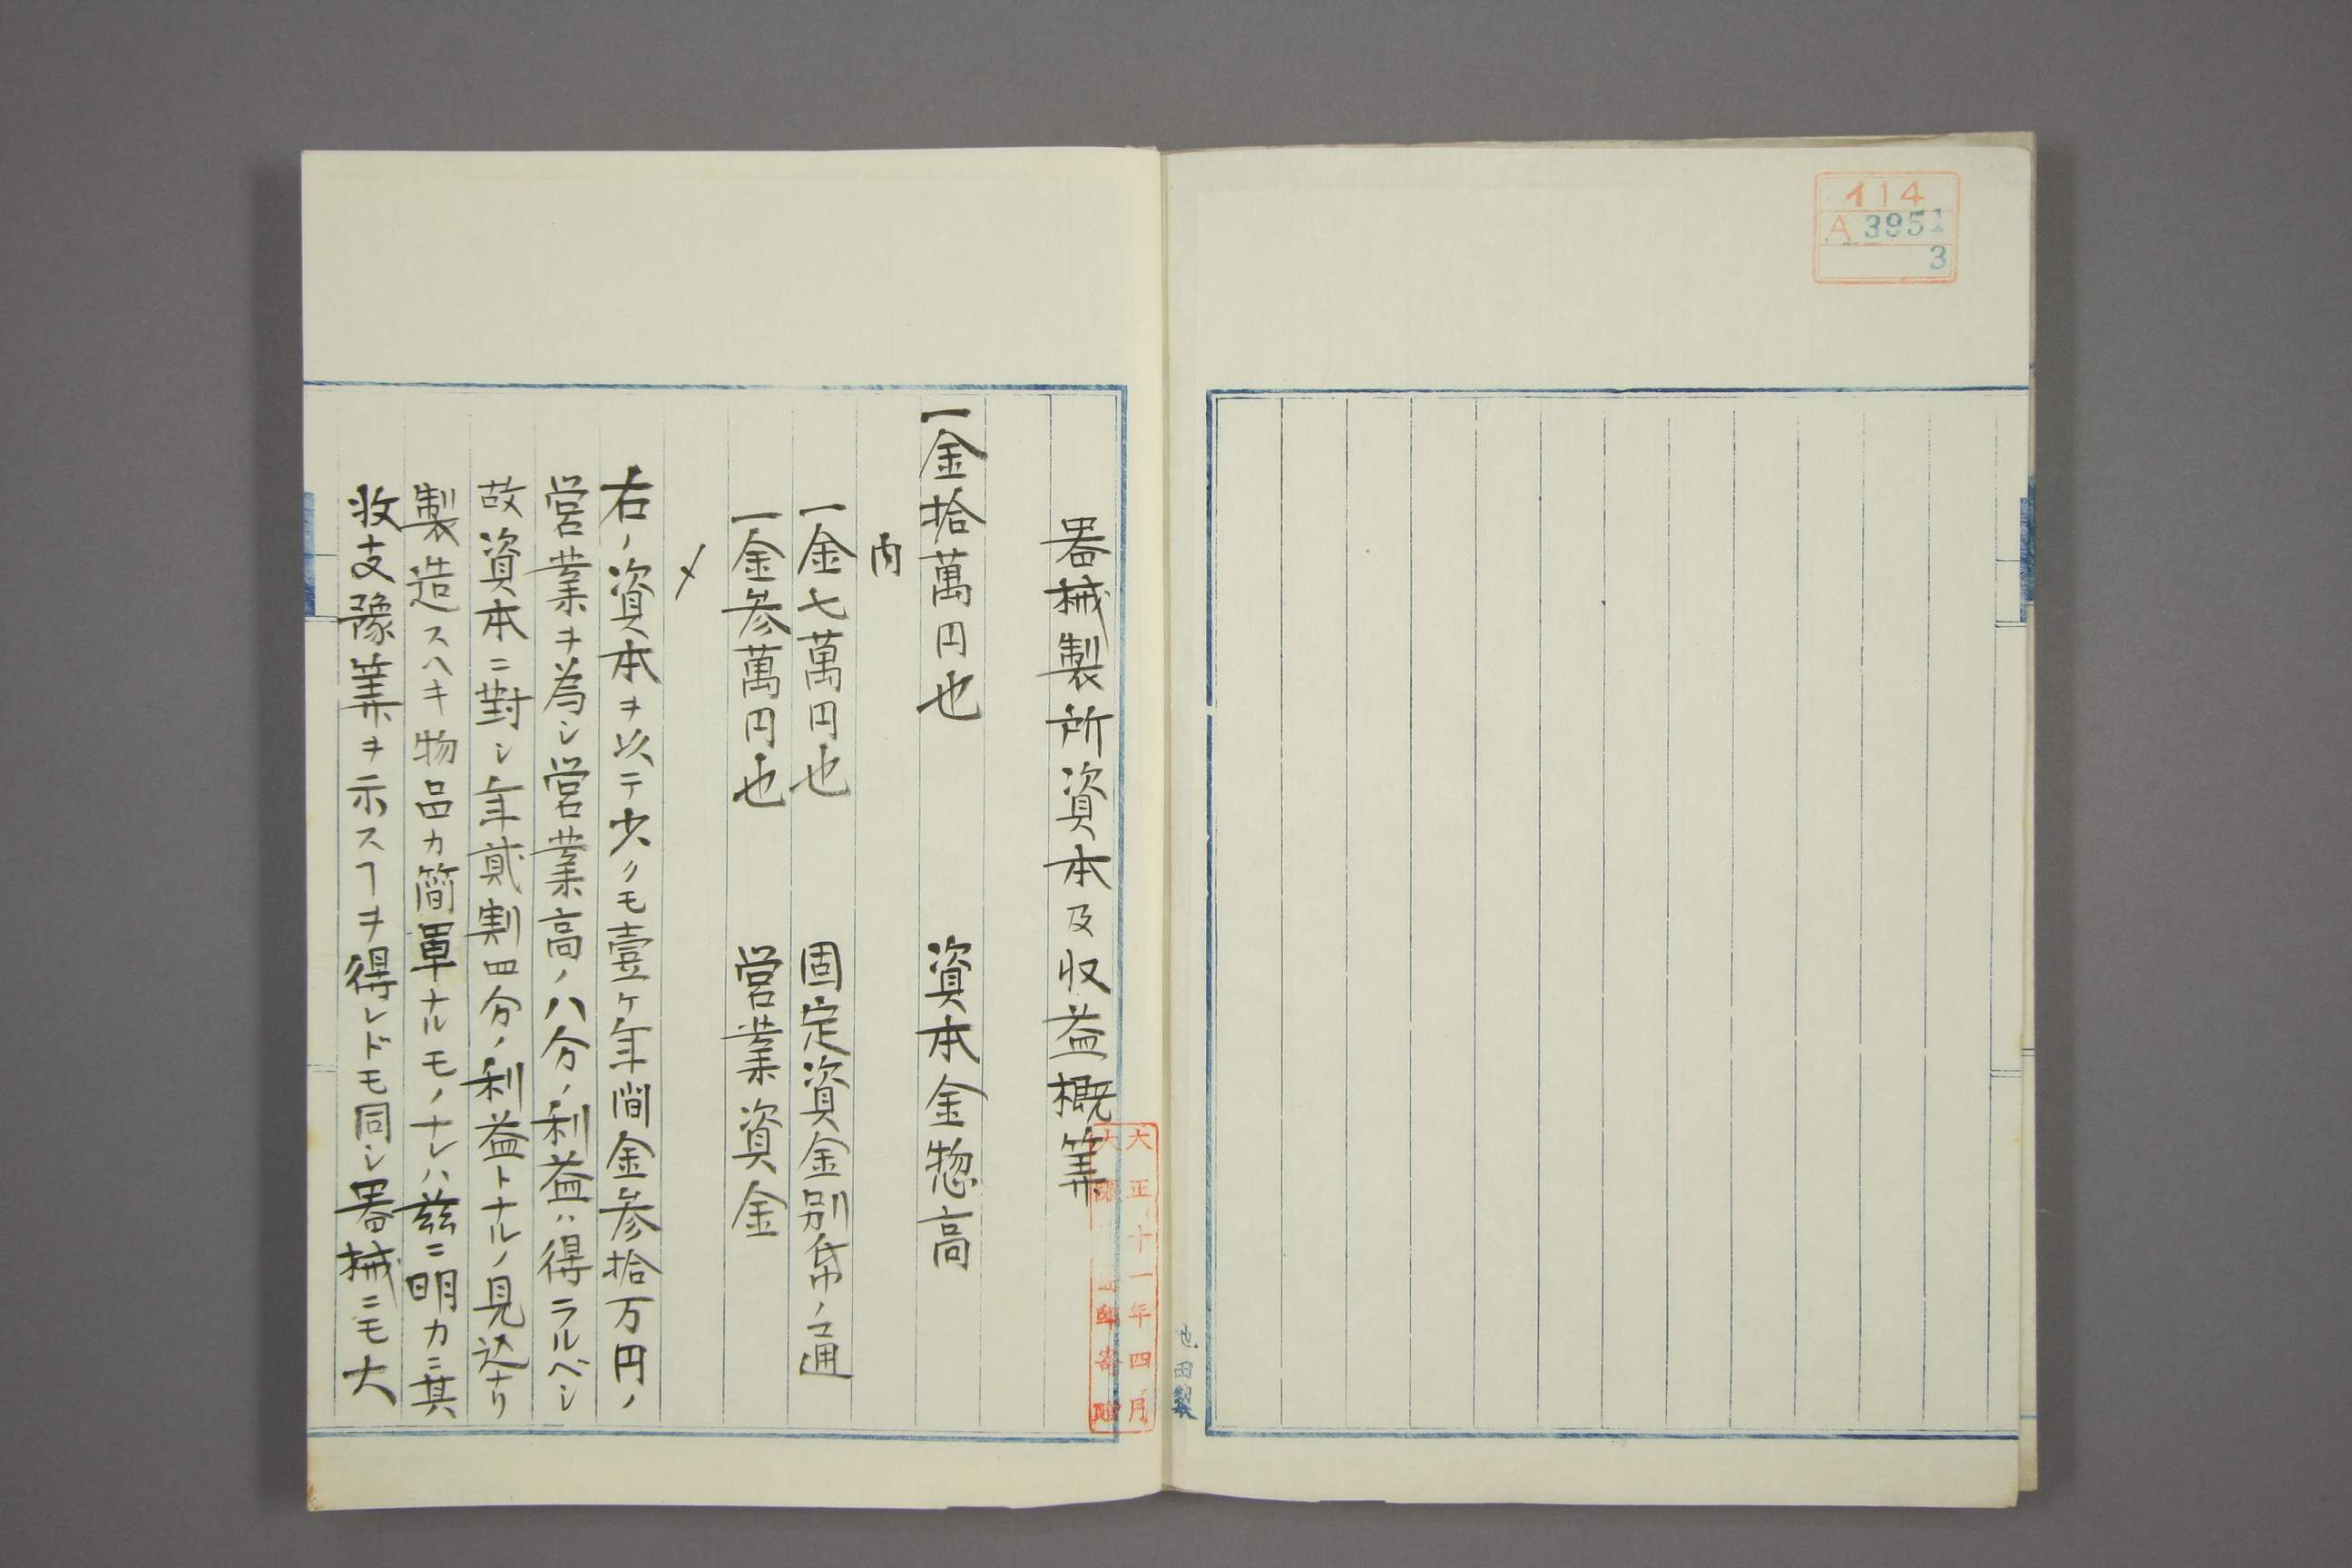 イ14
A 3951
3
池田製
大正十一年四月
大隈
寄贈
器械製所資本及収益概筭
一金拾萬円也 資本金惣高
内
一金七萬円也 固定資金別帋ノ通
一金参萬円也 営業資金
〆
右ノ資本ヲ以テ少クモ壹ケ年間金参拾万円ノ
営業ヲ為シ営業高ノ八分ノ利益ハ得ラルベシ
故資本ニ對シ年貮割四分ノ利益トナルノ見込ナリ
製造スヘキ物品カ簡單ナルモノナレハ茲ニ明カニ其
收支豫筭ヲ示スヿヲ得レドモ同シ器械ニモ大